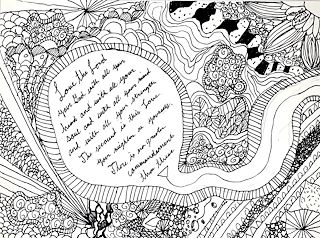 Love the Lord
your God with all your
heart and with all your
soul and with all your mind
and with all your strength
The second is this: Love
your neighbor as yourself.
There is no greater
commandment
than these